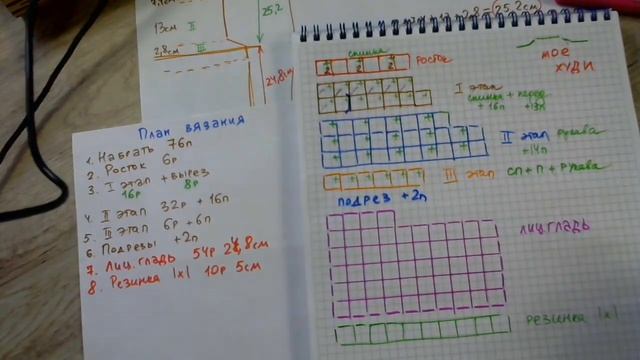 13см II
2,8см III
25,2
24,8см
2,8=(25,2см)
План вязания
1. Набрать 76п
2. Росток 6р
3. I этап + вырез
16р 8р
4. II этап 32р + 16п
5. III этап 6р + 6п
6. Подрезы +2п
7. Лиц.гладь 54р 24,8см
8. Резинка 1х1 10р 5см
спинка
2 2 2
Росток
мое
худи
I этап
спинка + перед
+16п +13п
II этап рукава
+14п
III этап сп + п + рукава
подрез +2п
лиц.гладь
резинка 1х1